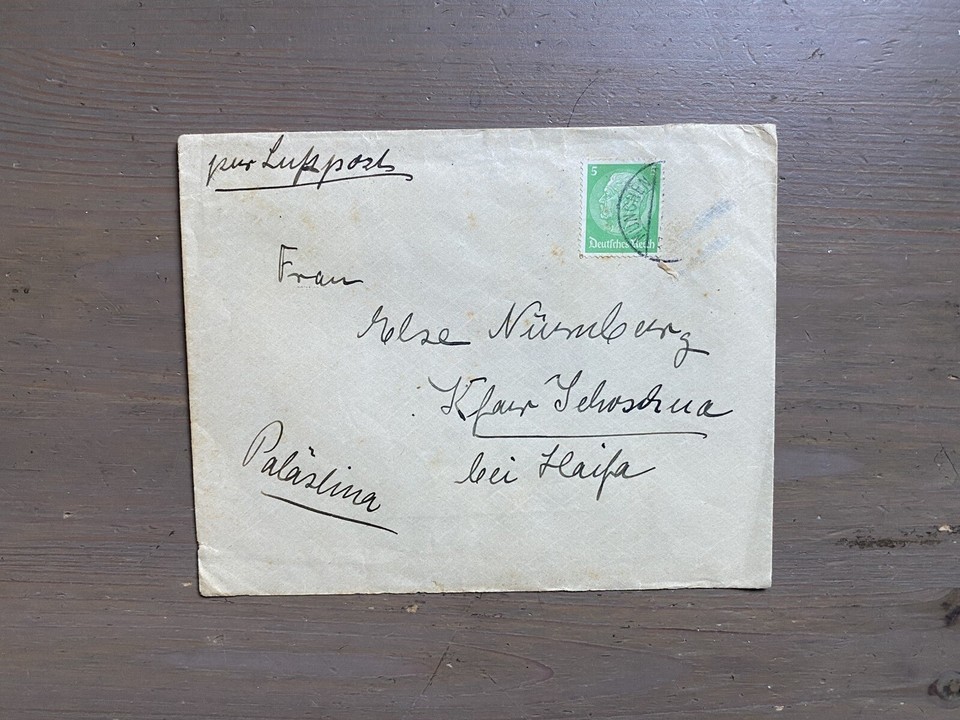 per Luftpost
5 5
MÜNCHEN
Deutsches Reich
Frau
Else Nürnberg
Kfar Jehoschua
bei Haifa
Palästina